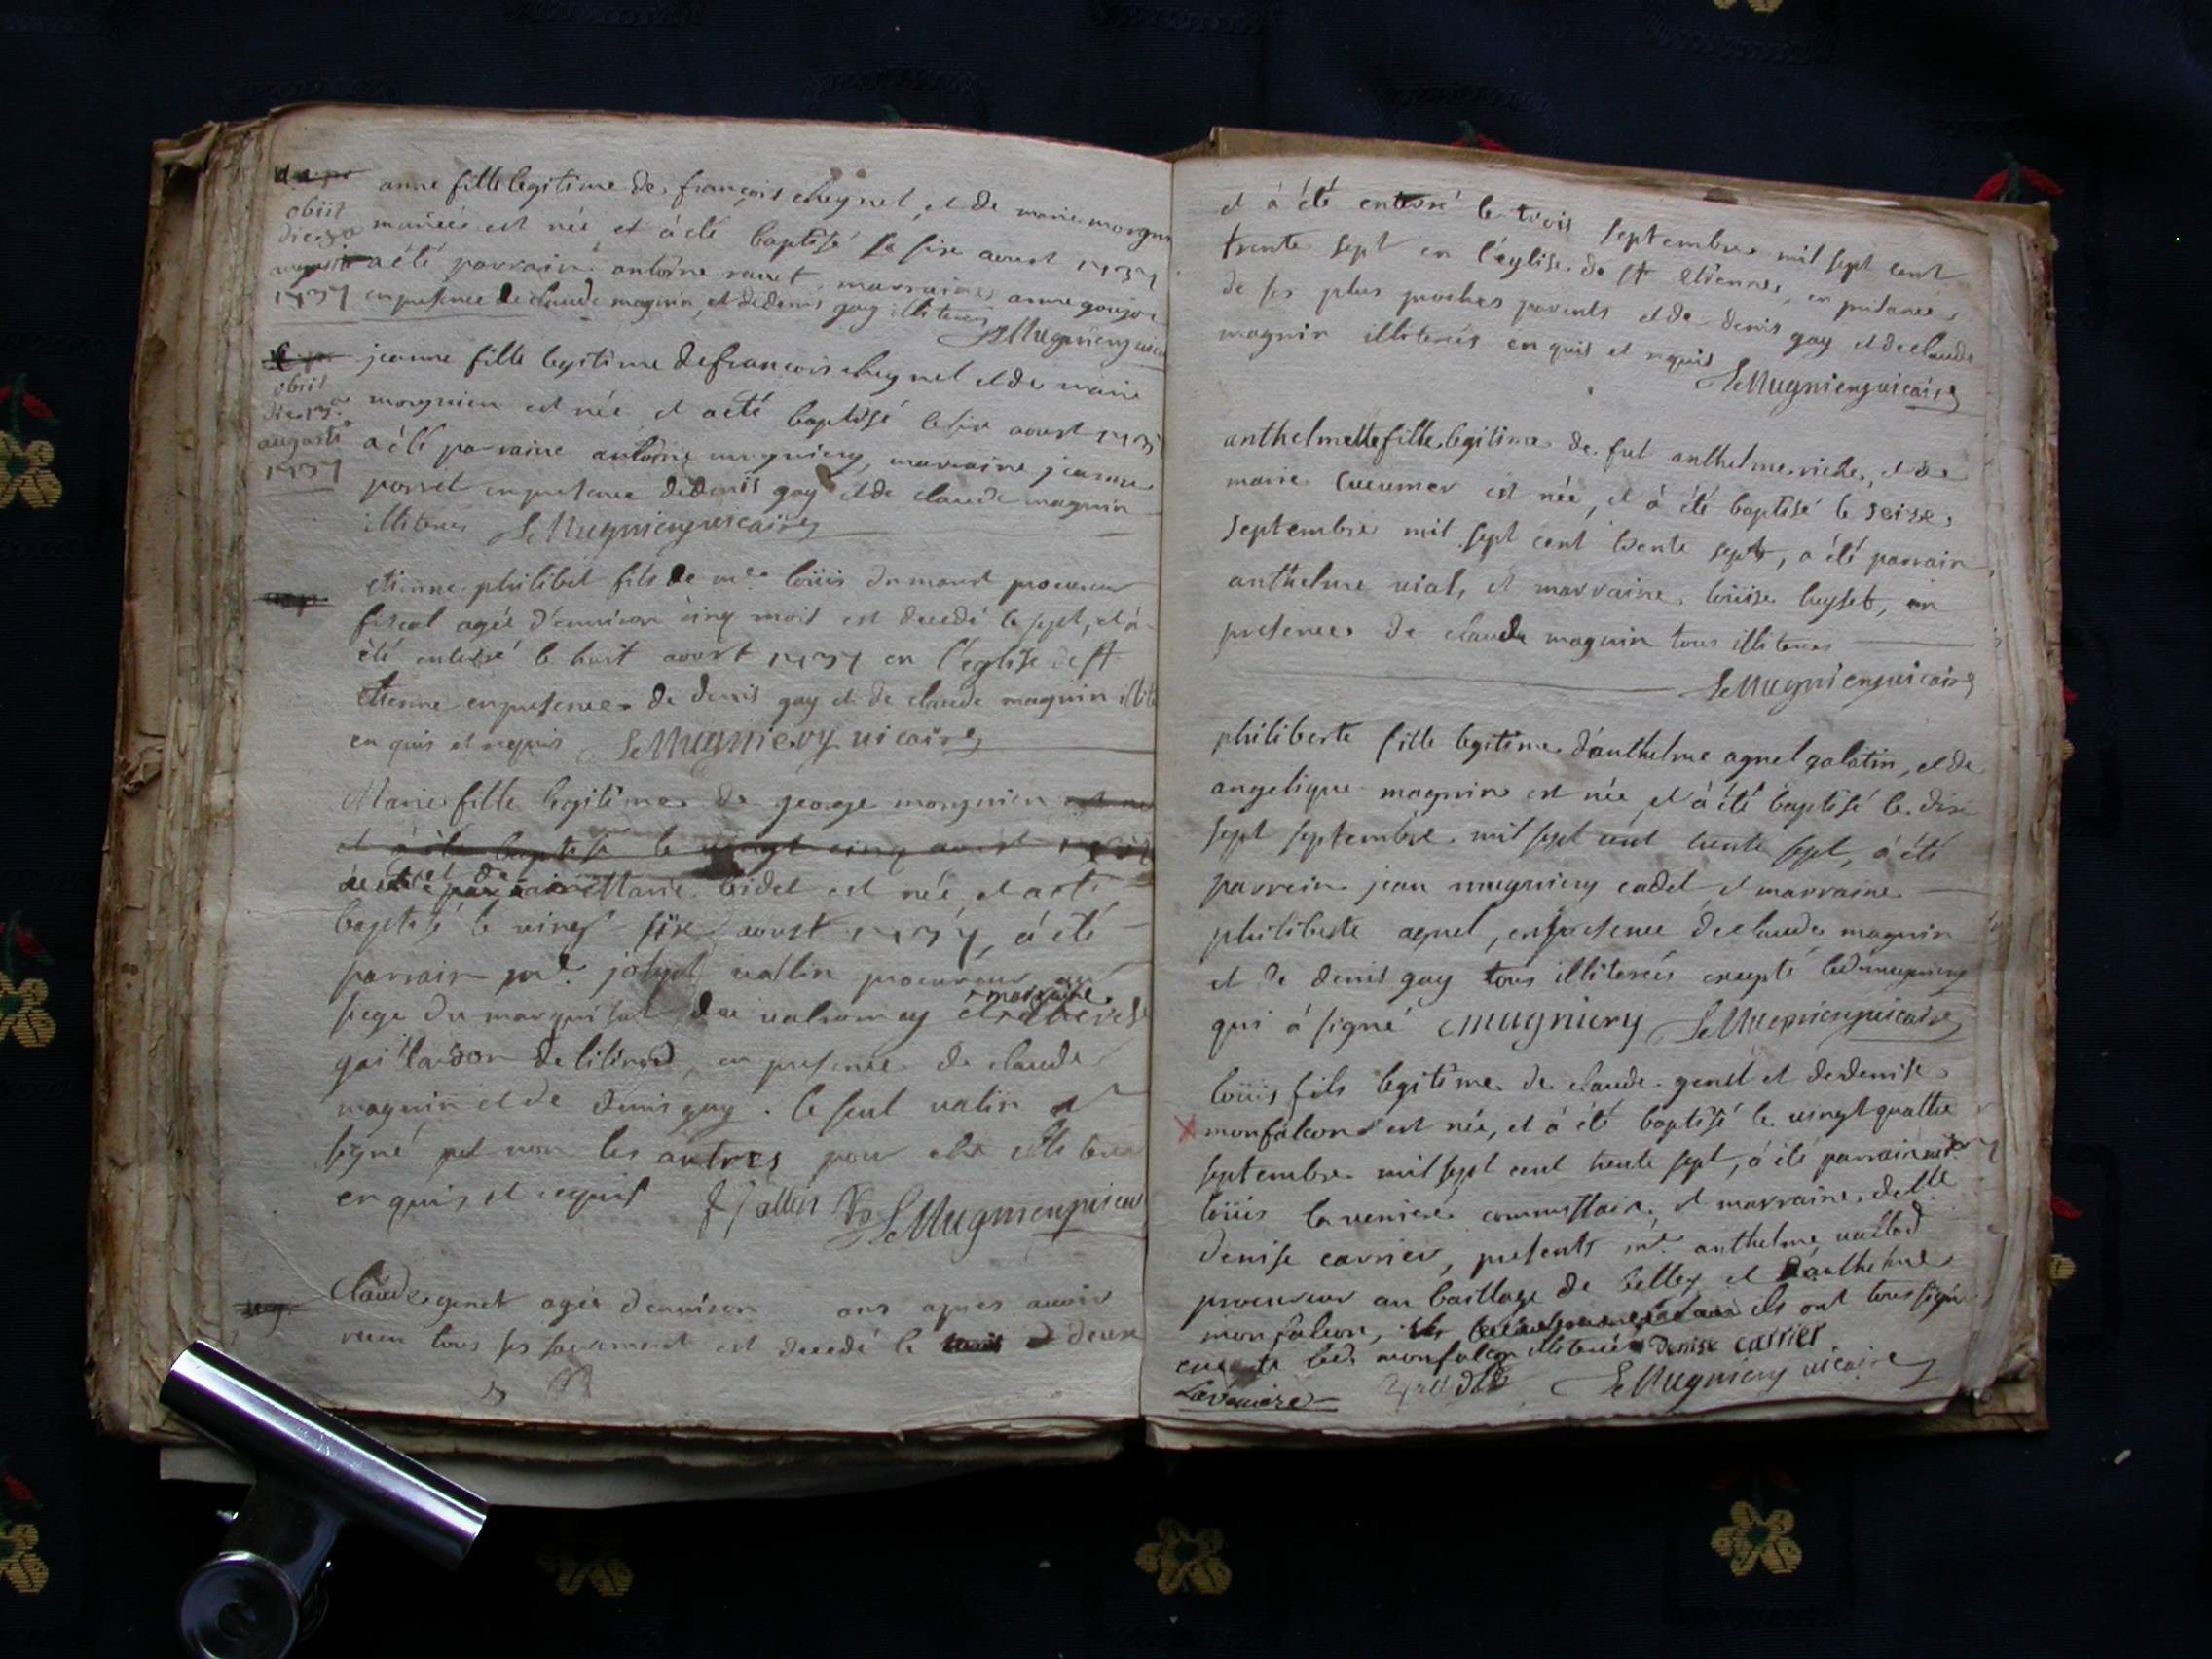 anne fille legitime de françois cheynel, et de marie morgni
obiit
die 30
augusti
1737
mariés est née et à été baptisé le six aoust 1737
a été parrain antoine marraine anne goujo
en presence de claude magnin, et de denis gay illiterés
Le Mugniery vicai
jeanne fille legitime de françois cheynel et de marie
obiit
die 13a
augusti
1737
morgnien est née et a été baptisé le six aoust 173
a été parraine antoine mugniery, marraine jeanne
porret en presence de denis gay et de claude magnin
illiteres Le Mugniery vicaire
etienne philibet fils de me loüis dumarest procureur
fiscal agée d'environ cinq mois est decedé le sept, et à
été enterré le huit aoust 1737 en l'eglise de st
etienne en presence de denis gay et de claude magnin illite
en quis et requis Le Mugniery vicaire
Marie fille legitime de george morgnien est né
et à été baptisé le vingt cinq aoust 1737
et de Marie bidet est née, et a été
baptisé le vingt six aoust 1737, à été
parrain mr. joseph vallin procureur au
siege du marquisat du valromey et marraine therese
gaillardon de litinod, en presence de claude
magnin et de denis gay. le seul valin a
signé et non les autres pour etre illiteres
en quis et requis J Vallin Le Mugniery vicai
Claude genet agée d'environ ans apres avoir
receu tous ses sacrement est decedé le deux
et à été enterré le trois septembre mil sept cent
trente sept en l'église de st etienne, en presence
de ses plus proches parents et de denis gay et de claude
magnin illiterés en quis et requis
Le Mugniery vicaire
anthelmette fille legitime de feu anthelme riche, et de
marie Cucumer est née, et à été baptisé le seise
septembre mil sept cent trente sept, a été parrain
anthelme vial, et marraine loüise luyset, en
presence de claude magnin tous illiteres
Le Mugniery vicaire
philiberte fille legitime d'anthelme agnel galatin, et de
angelique magnin est née, et à été baptisé le dix
sept septembre mil sept cent trente sept, à été
parrein jean mugniery cadet et marraine
philiberte agnel, en presence de claude magnin
et de denis gay tous illiterés excepté led. mugniery
qui à signé Mugniery Le Mugniery vicaire
loüis fils legitime de claude genet et de denise
monfalcon est née, et à été baptisé le vingt quattre
septembre mil sept cent trente sept, à été parrain mr.
loüis laveniere commissaire, et marraine delle
denise carrier, presents mr. anthelme vallod
procureur au bailliage de belley et d'anthelme
monfalcon, ils ont tous signé
excepté led. monfalcon illiteré denise carrier
Laveniere Le Mugniery vicaire